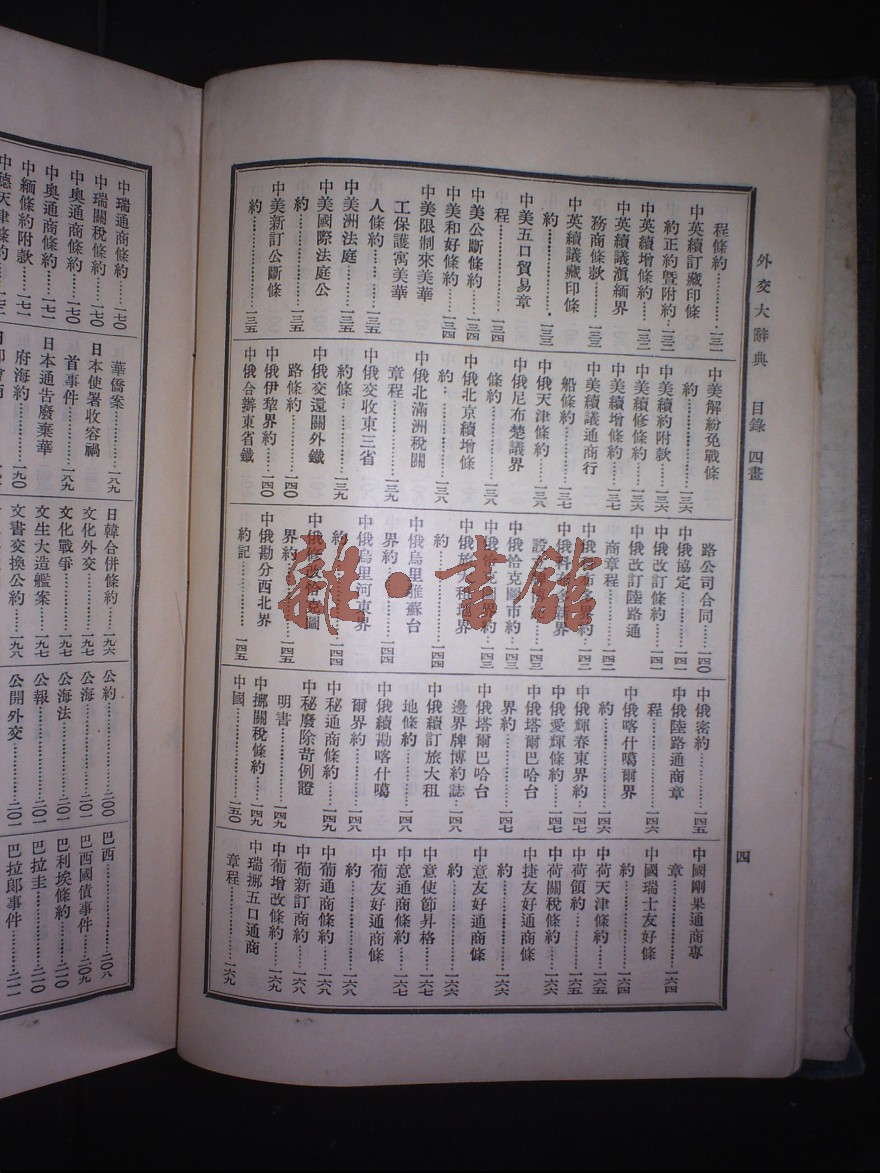 外交大辭典 目錄 四畫
四
程條約………一三一
中英續訂藏印條
約正約曁附約…一三二
中英續增條約……一三二
中英續議滇緬界
務商條款………一三三
中英續議藏印條
約………………一三三
中美五口貿易章
程………………一三四
中美公斷條約……一三四
中美和好條約……一三四
中美限制來美華
工保護寓美華
人條約…………一三五
中美洲法庭………一三五
中美國際法庭公
約………………一三五
中美新訂公斷條
約………………一三五
中美解紛免戰條
約………………一三六
中美續約附款……一三六
中美續修條約……一三六
中美續增條約……一三七
中美續議通商行
船條約…………一三七
中俄天津條約……一三八
中俄尼布楚議界
條約……………一三八
中俄北京續增條
約………………一三八
中俄北滿洲稅關
章程……………一三九
中俄交收東三省
約條……………一三九
中俄交還關外鐵
路條約…………一四〇
中俄伊犂界約……一四〇
中俄合辦東省鐵
路公司合同……一四〇
中俄協定…………一四一
中俄改訂條約……一四一
中俄改訂陸路通
商章程…………一四二
約………………一四二
中俄恰克圖市約…一四三
中俄恰克圖界約…一四三
中俄烏里雅蘇台
界約……………一四四
中俄烏里河東界
約………………一四四
中俄修改恰克圖
界約……………一四五
中俄勘分西北界
約記……………一四五
中俄密約…………一四五
中俄陸路通商章
程………………一四六
中俄喀什噶爾界
約………………一四六
中俄輝春東界約…一四七
中俄愛輝條約……一四七
中俄塔爾巴哈台
界約……………一四七
中俄塔爾巴哈台
邊界牌博約誌…一四八
中俄續訂旅大租
地條約…………一四八
中俄續勘喀什噶
爾界約…………一四八
中秘通商條約……一四九
中秘廢除苛例證
明書……………一四九
中挪關稅條約……一四九
中國………………一五〇
中國剛果通商專
章………………一六四
中國瑞士友好條
約………………一六四
中荷天津條約……一六五
中荷領約…………一六五
中荷關稅條約……一六六
中捷友好通商條
約………………一六六
中意友好通商條
約………………一六六
中意使節昇格……一六七
中意通商條約……一六七
中葡友好通商條
約………………一六八
中葡通商條約……一六八
中葡新訂商約……一六八
中葡增改條約……一六九
中瑞挪五口通商
章程……………一六九
中瑞通商條約……一七〇
中瑞關稅條約……一七〇
中奧通商條約……一七〇
中奧通商條約……一七一
中緬條約附款……一七一
中德天津條約
華僑案…………一八九
日本使署收容禍
首事件…………一八九
日本通告廢棄華
府海約…………一九〇
日韓合併條約……一九六
文化外交…………一九七
文化戰爭…………一九七
文生大造艦案……一九七
文書交換公約……一九八
公約………………二〇〇
公海………………二〇一
公海法……………二〇一
公報………………二〇一
公開外交…………二〇一
巴西………………二〇八
巴西國債事件……二〇九
巴利埃條約………二一〇
巴拉圭……………二一〇
巴拉郞事件………二一一
雜·書館